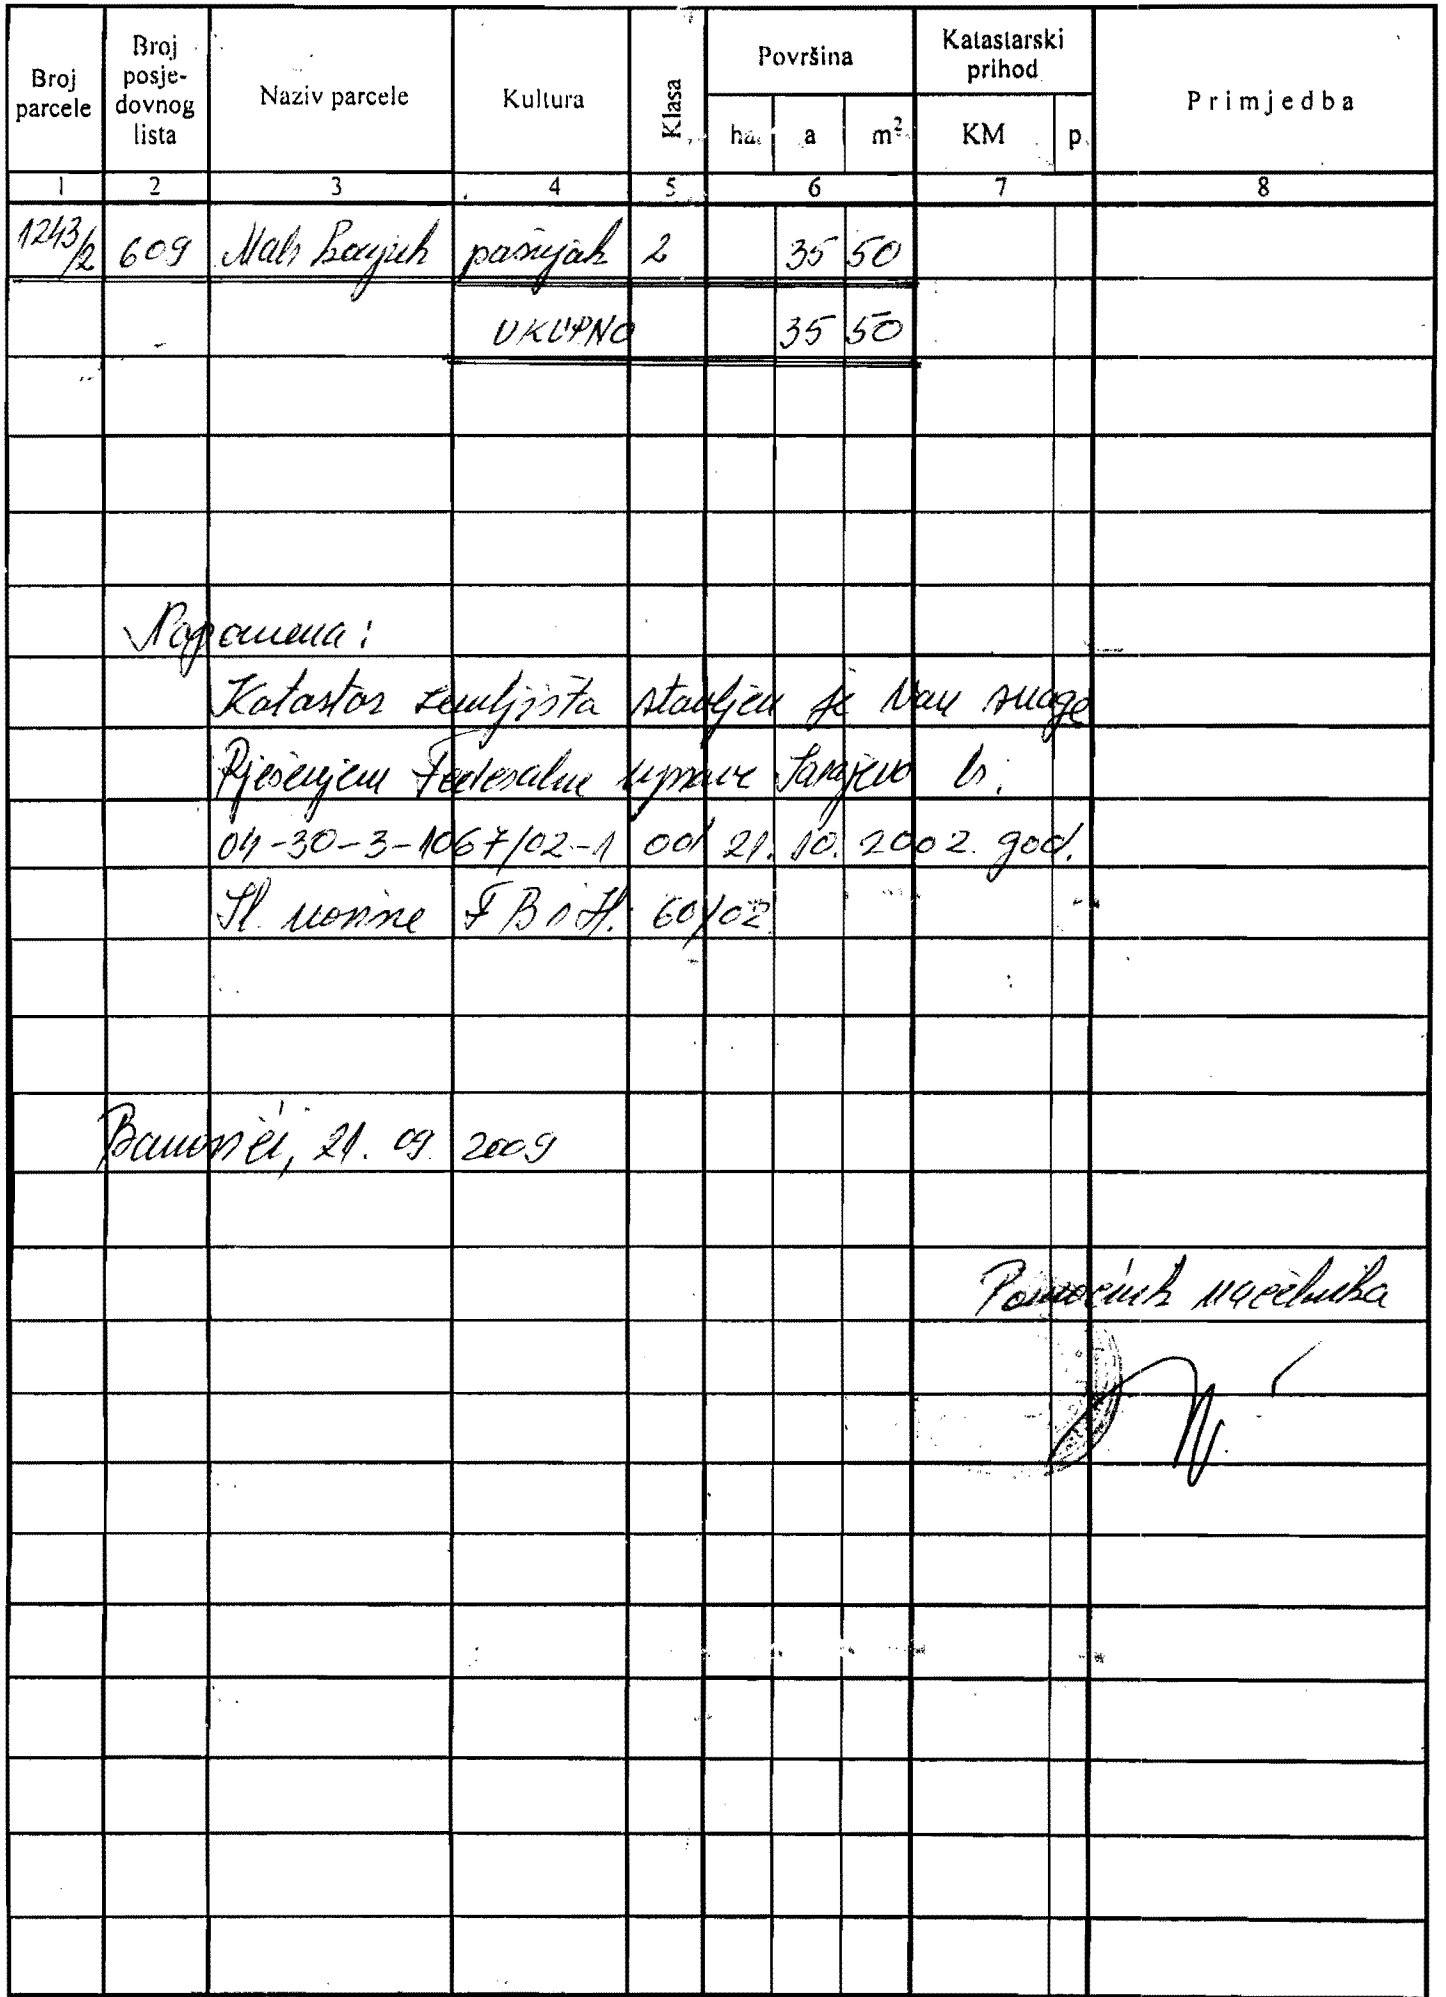 Broj parcele Broj posje- dovnog lista Naziv parcele Kultura Klasa Površina Katastarski prihod Primjedba
ha a m² KM p
1 2 3 4 5 6 7 8
1243/2 609 Mali pašnjak 2 35 50
UKUPNO 35 50
Napomena:
Katastar zemljišta stavljen je van snage
Rješenjem Federalne uprave Sarajevo br.
04-30-3-1067/02-1 od 21. 10. 2002. god.
Sl. novine F BiH. 60/02
Banovići, 21. 09. 2009
Pomoćnik načelnika